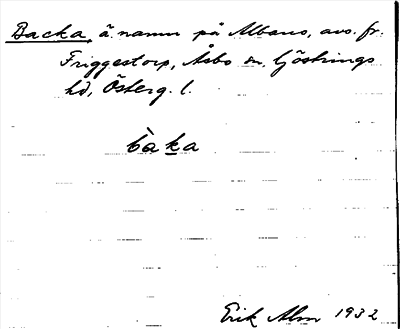 Backa, ä. namn på Albano, avs. fr.
Friggestorp, Åsbo sn, Göstrings
hd, Österg. l.
bàka
Erik Alm 1932